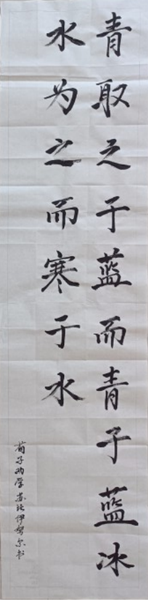 青取之于蓝而青于蓝冰
水为之而寒于水
荀子劝学 苏比伊努尔书